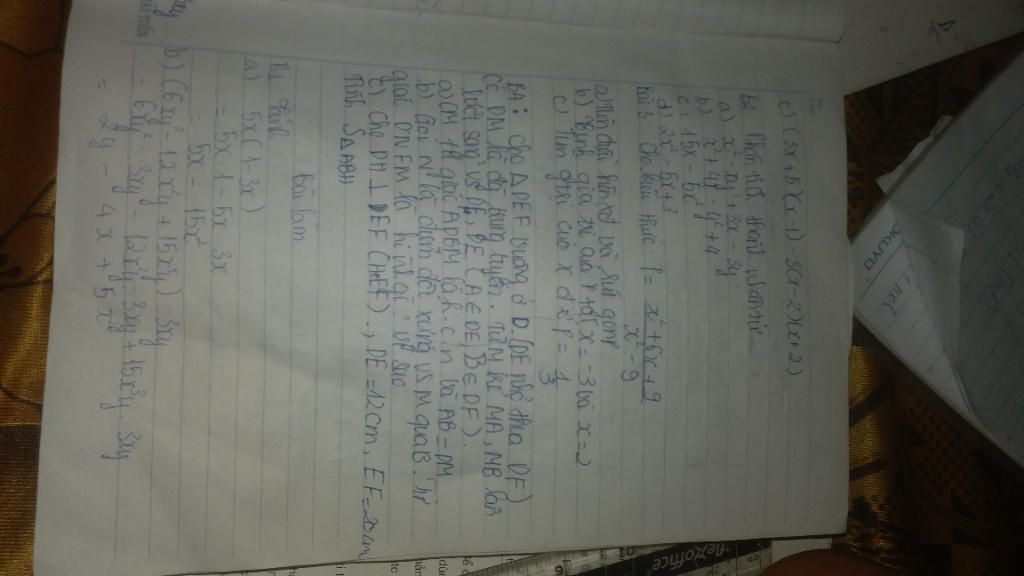 c) (5x+5)(x-1) - 3(x-2)(x+2)
B2 Phân tích thành nhân tử
a) x² - xy + 3x - 3y
b) x² + 4x - y² + 4
c) 15x - 5x²
d) 2x² - 5x + 3
Bài 3. Cho biểu thức P = x² + 6x + 9 / x² - 9
a) và rút gọn
b) Định giá trị của P tại x = -3 và x = 2
c) Tìm giá trị của x để P = 1/3
B4: Cho △DEF vuông ở D (DE nhỏ hơn DF)
Có DM là đg trung tuyến. Từ M kẻ MA, MB lần
lượt song vs DF, DE (A ∈ DE, B ∈ DF).
a) CM tứ giác ADBM là h.c.n và AB = DM
b) Gọi N là điểm đối xứng vs M qua B. Tứ
giác DNFM là hình gì? Vì sao
c) Cho DH ⊥ EF (H∈EF), DE = 12cm, EF = 20cm
Tính S△ABH
Bài làm
B1 Tính
a) 5x(1-3x)
= 5x . 1 - 5x . 3x
= 5x - 15x²
b) (6xy² - 12x²y + 15x³y) : 3xy
= 6xy² : 3xy - 12x²y : 3xy + 15x³y : 3xy
= 2y - 4x + 5x²
flexoffice